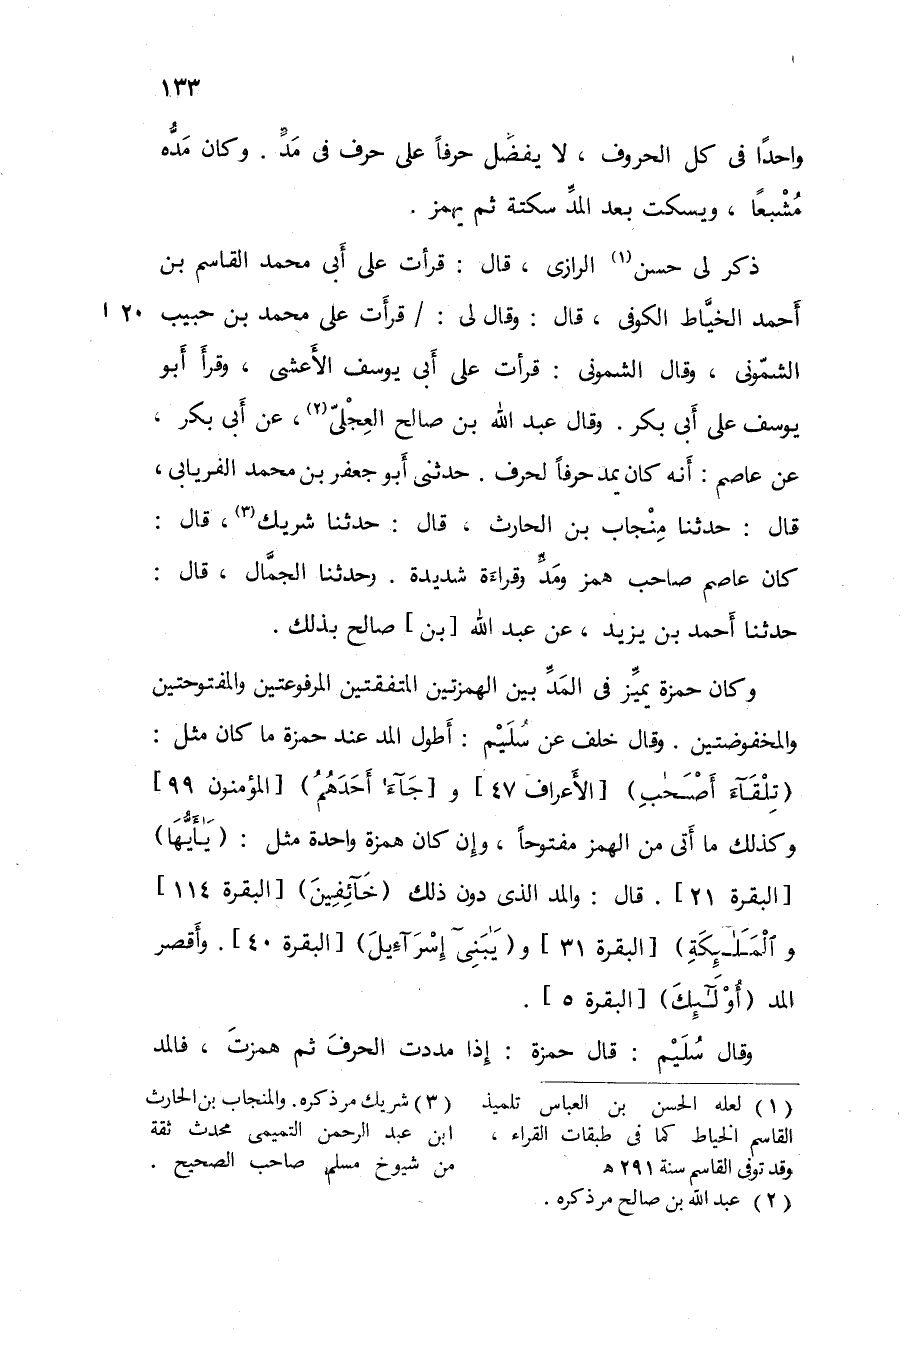 ١٣٣
واحدًا فى كل الحروف ، لا يفضَل حرفاً على حرف فى مَدٍّ . وكان مَدُّه
مُشْبعًا ، ويسكت بعد المدِّ سكتة ثم يهمز .
ذكر لى حسن(١) الرازى ، قال : قرأت على أبى محمد القاسم بن
أحمد الخيَّاط الكوفى ، قال : وقال لى : / قرأت على محمد بن حبيب ٢٠ ا
الشمّونى ، وقال الشمونى : قرأت على أبى يوسف الأعشى ، وقرأ أبو
يوسف على أبى بكر . وقال عبد الله بن صالح العِجْلىّ(٢) ، عن أبى بكر ،
عن عاصم : أنه كان يمد حرفاً لحرف . حدثنى أبو جعفر بن محمد الفريابى ،
قال : حدثنا مِنْجاب بن الحارث ، قال : حدثنا شريك(٣) ، قال :
كان عاصم صاحب همز ومَدٍّ وقراءة شديدة . وحدثنا الجمَّال ، قال :
حدثنا أحمد بن يزيد ، عن عبد الله [بن] صالح بذلك .
وكان حمزة يميِّز فى المَدِّ بين الهمزتين المتفقتين المرفوعتين والمفتوحتين
والمخفوضتين . وقال خلف عن سُلَيْم : أطول المد عند حمزة ما كان مثل :
(تِلْقَآءَ أَصْحَٰبِ) [الأعراف ٤٧] و [جَآءَ أَحَدَهُمُ) [المؤمنون ٩٩]
وكذلك ما أتى من الهمز مفتوحاً ، وإن كان همزة واحدة مثل : (يَٰأَيُّهَا)
[البقرة ٢١] . قال : والمد الذى دون ذلك (خَآئِفِينَ) [البقرة ١١٤]
و ٱلْمَلَٰٓئِكَةِ) [البقرة ٣١] و (يَٰبَنِىٓ إِسْرَآءِيلَ) [البقرة ٤٠] . وأقصر
المد (أُوْلَٰٓئِكَ) [البقرة ٥] .
وقال سُلَيْم : قال حمزة : إذا مددت الحرفَ ثم همزتَ ، فالمد
(١) لعله الحسن بن العباس تلميذ
القاسم الخياط كما فى طبقات القراء ،
وقد توفى القاسم سنة ٢٩١ ھ
(٢) عبد الله بن صالح مر ذكره .
(٣) شريك مر ذكره. والمنجاب بن الحارث
ابن عبد الرحمن التميمى محدث ثقة
من شيوخ مسلم صاحب الصحيح .